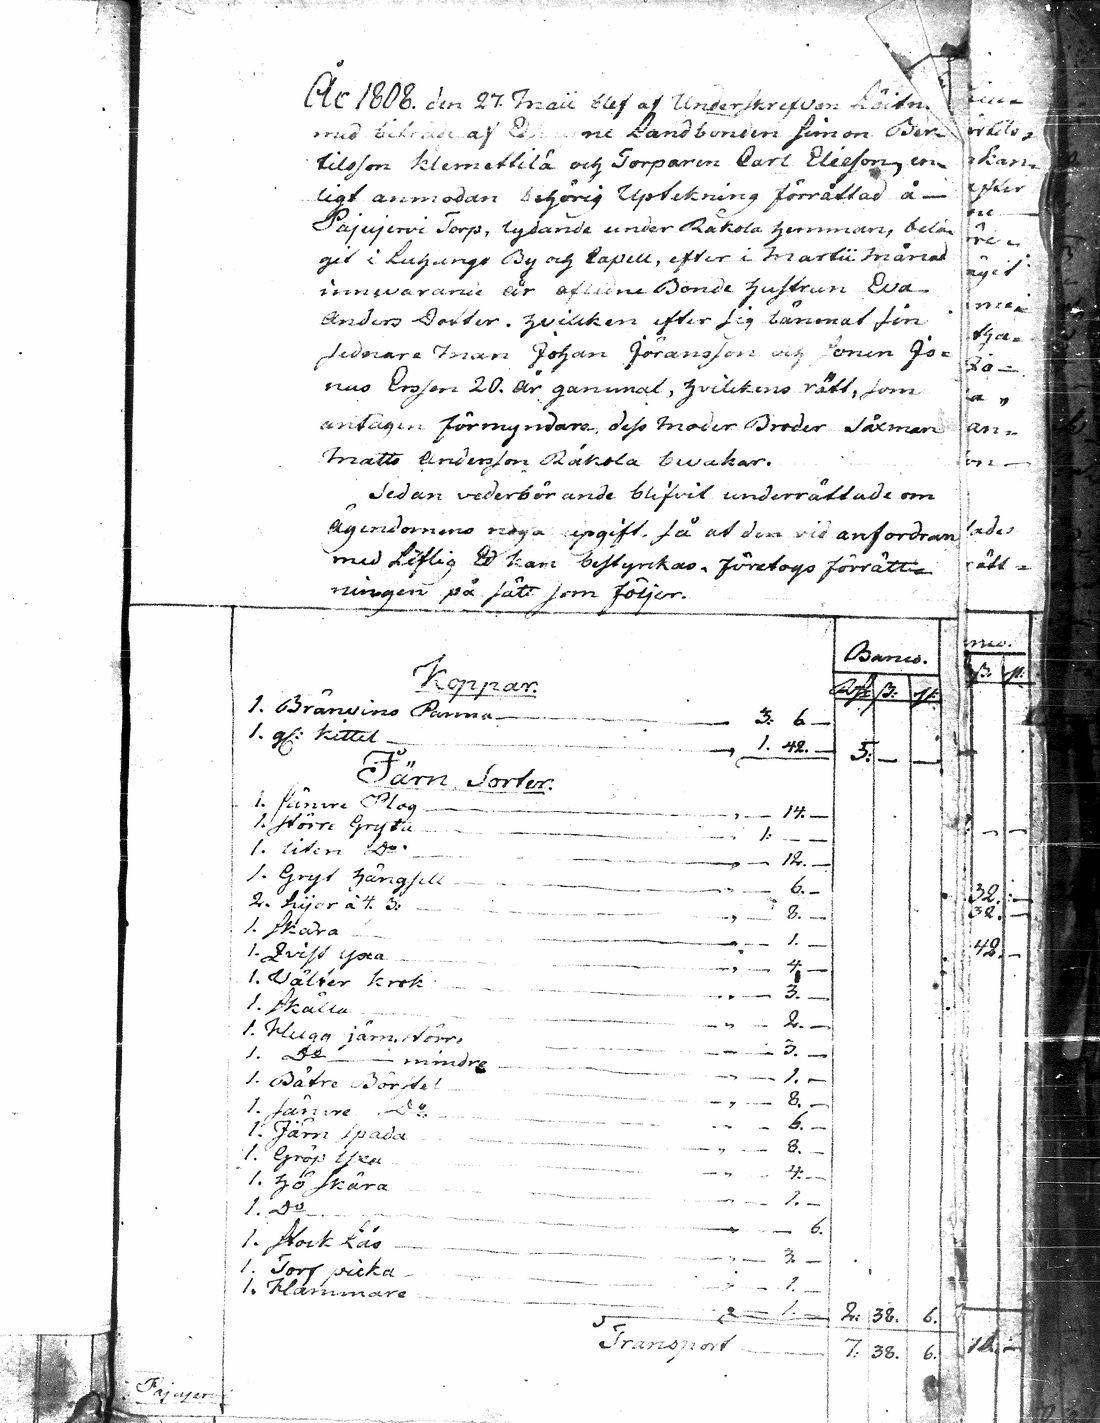 År 1808. den 27. Maii blef af Underskrefven
med biträde af Landbonden Simon Ber-
tilsson Klemettilä och Torparen Carl Elieson, en-
ligt anmodan behörig Uptekning förrättad å —
Pajujervi Torp, lydande under Räkola hemman, belä-
git i Luhango By och Capell, efter i Martii Månad
innevarande år aflidne Bonde hustrun Eva
Anders Dotter. hvilcken efter sig lämnat sin
sednare man Johan Jöransson och Sonen Jo-
nas Ersson 20. år gammal, hvilckens rätt, som
antagen förmyndare, dess Moder Broder
Matts Andersson Räkola bevakar.
Sedan vederbörande blifvit underrättade om
Ägendomens noga upgift, så at den vid anfordran
med Liflig Ed kan bestyrckas, företogs förrätt-
ningen på sätt som följer.
Banco.
Rd ß: rst:
Koppar.
1. Bränvins Panna — 3. 6. —
1. gl: Kittel — 1. 42. — 5. — —
Järn Sorter.
1. sämre Plog — „ — 14. —
1. större Gryta — 1. —
1. liten Do. — „ — 12. —
1. Gryt hängsell — 6. —
2. Lijor à 4 ß: — „ — 8. —
1. Skära — „ — 1. —
1. Qvist yxa — „ — 4. —
1. Välter krok — „ — 3. —
1. Skälla — „ — 2. —
1. Hugg järn, större — „ — 3. —
1. Do — mindre — „ — 1. —
1. Bätre Börstel — „ — 8. —
1. sämre Do. — „ — 6. —
1. Järn spada — „ — 8. —
1. Gröp Yxa — „ — 4. —
1. Hö skära — „ — 1. —
1. Do — „ — 6.
1. Stock Lås — „ — 3. —
1. Torf picka — „ — 1. —
1. Hammare — „ — 1. — 2. 38. 6.
Transport — 7. 38. 6.
32. —
32. —
42. —